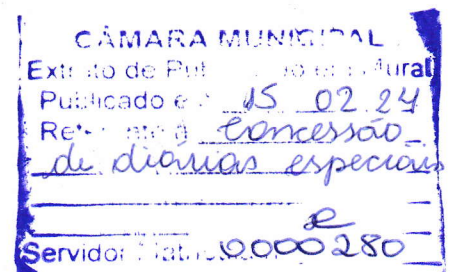 CÂMARA MUNICIPAL
Extrato de Publicação em Mural
Publicado em 15 02 24
Referente à Concessão
de diárias especiais
Servidor Matrícula 0000280